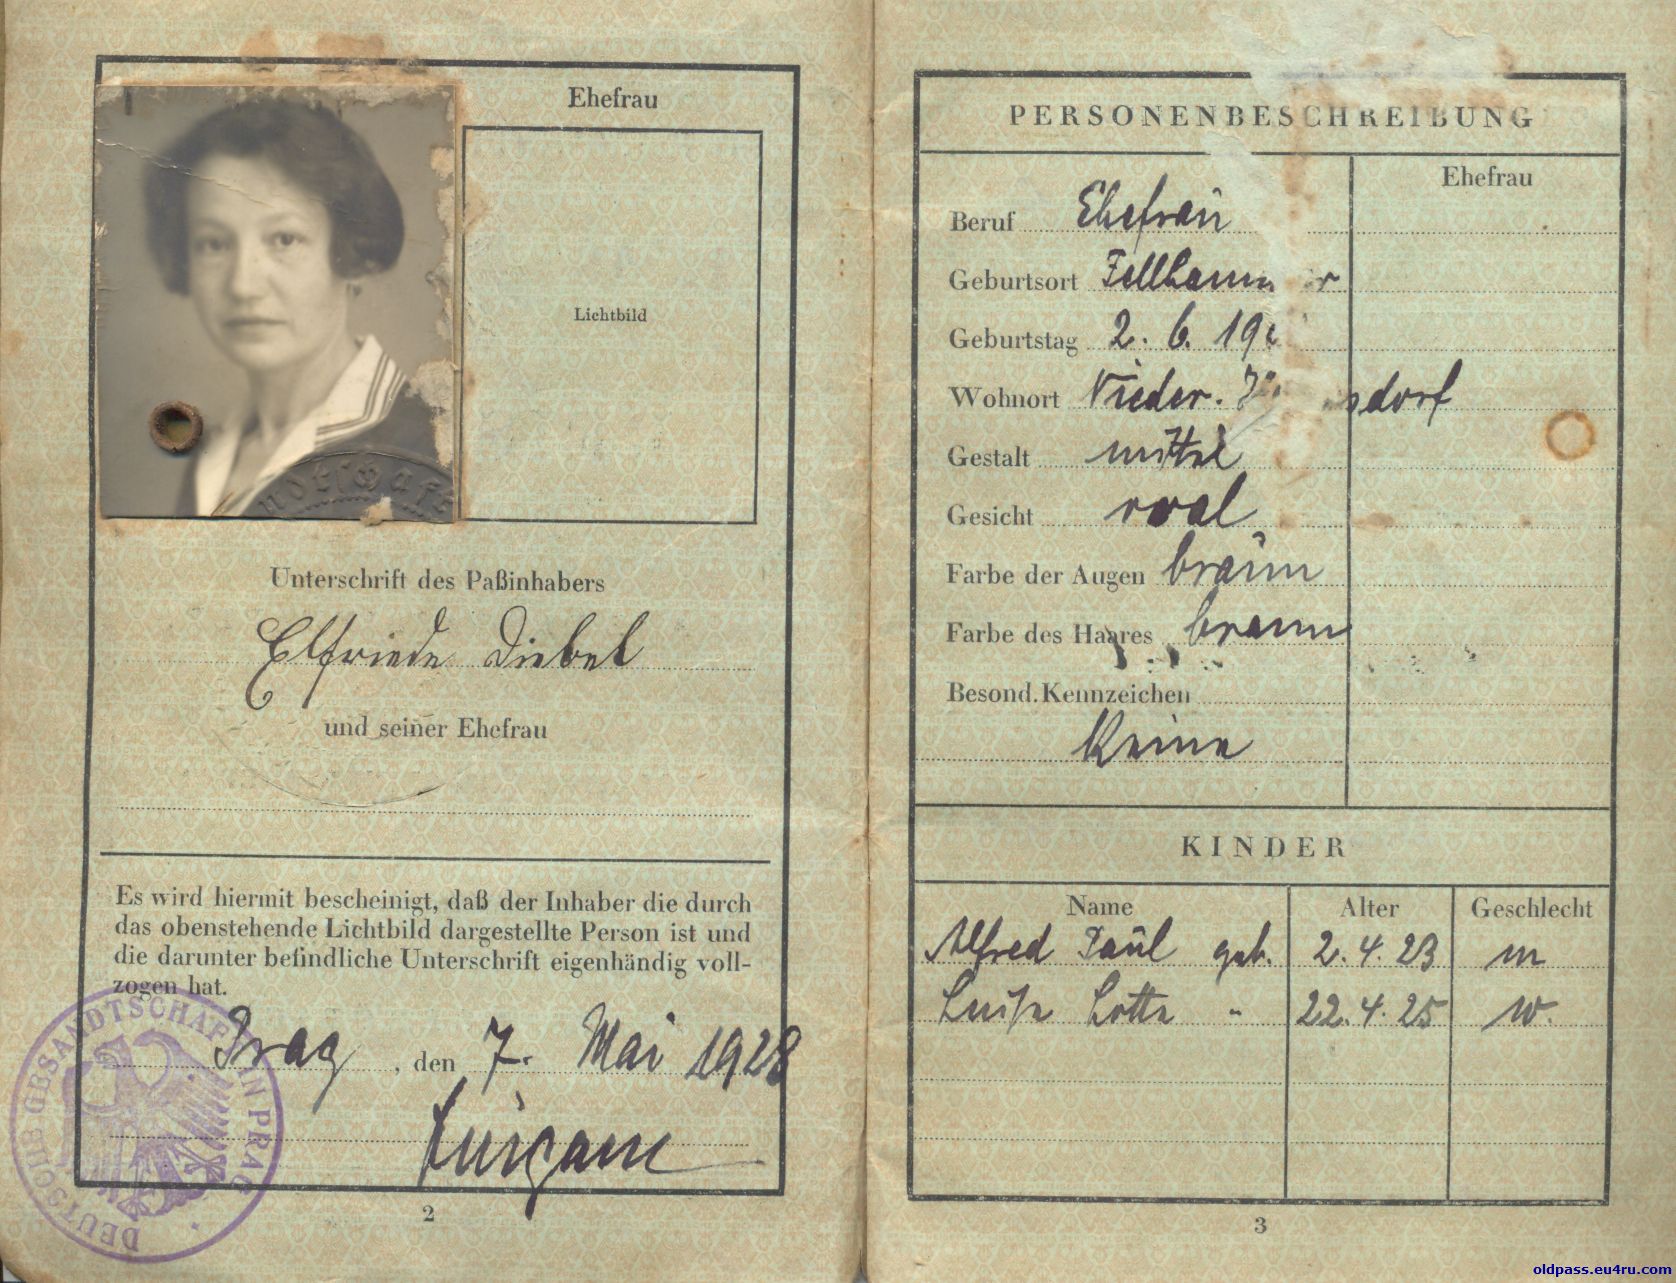 Ehefrau
Lichtbild
ndtschaft
Unterschrift des Paßinhabers
Elfriede Diebel
und seiner Ehefrau
Es wird hiermit bescheinigt, daß der Inhaber die durch
das obenstehende Lichtbild dargestellte Person ist und
die darunter befindliche Unterschrift eigenhändig voll-
zogen hat.
Prag, den 7. Mai 1928
DEUTSCHE GESANDTSCHAFT IN PRAG
2
PERSONENBESCHREIBUNG
Ehefrau
Beruf Ehefrau
Geburtsort Fellhammer
Geburtstag 2. 6. 19
Wohnort Nieder. sdorf
Gestalt mittel
Gesicht oval
Farbe der Augen braun
Farbe des Haares braun
Besond. Kennzeichen
Keine
KINDER
Name Alter Geschlecht
Alfred Paul geb. 2.4.23 m
Luise Lotte " 22.4.25 w.
3
oldpass.eu4ru.com